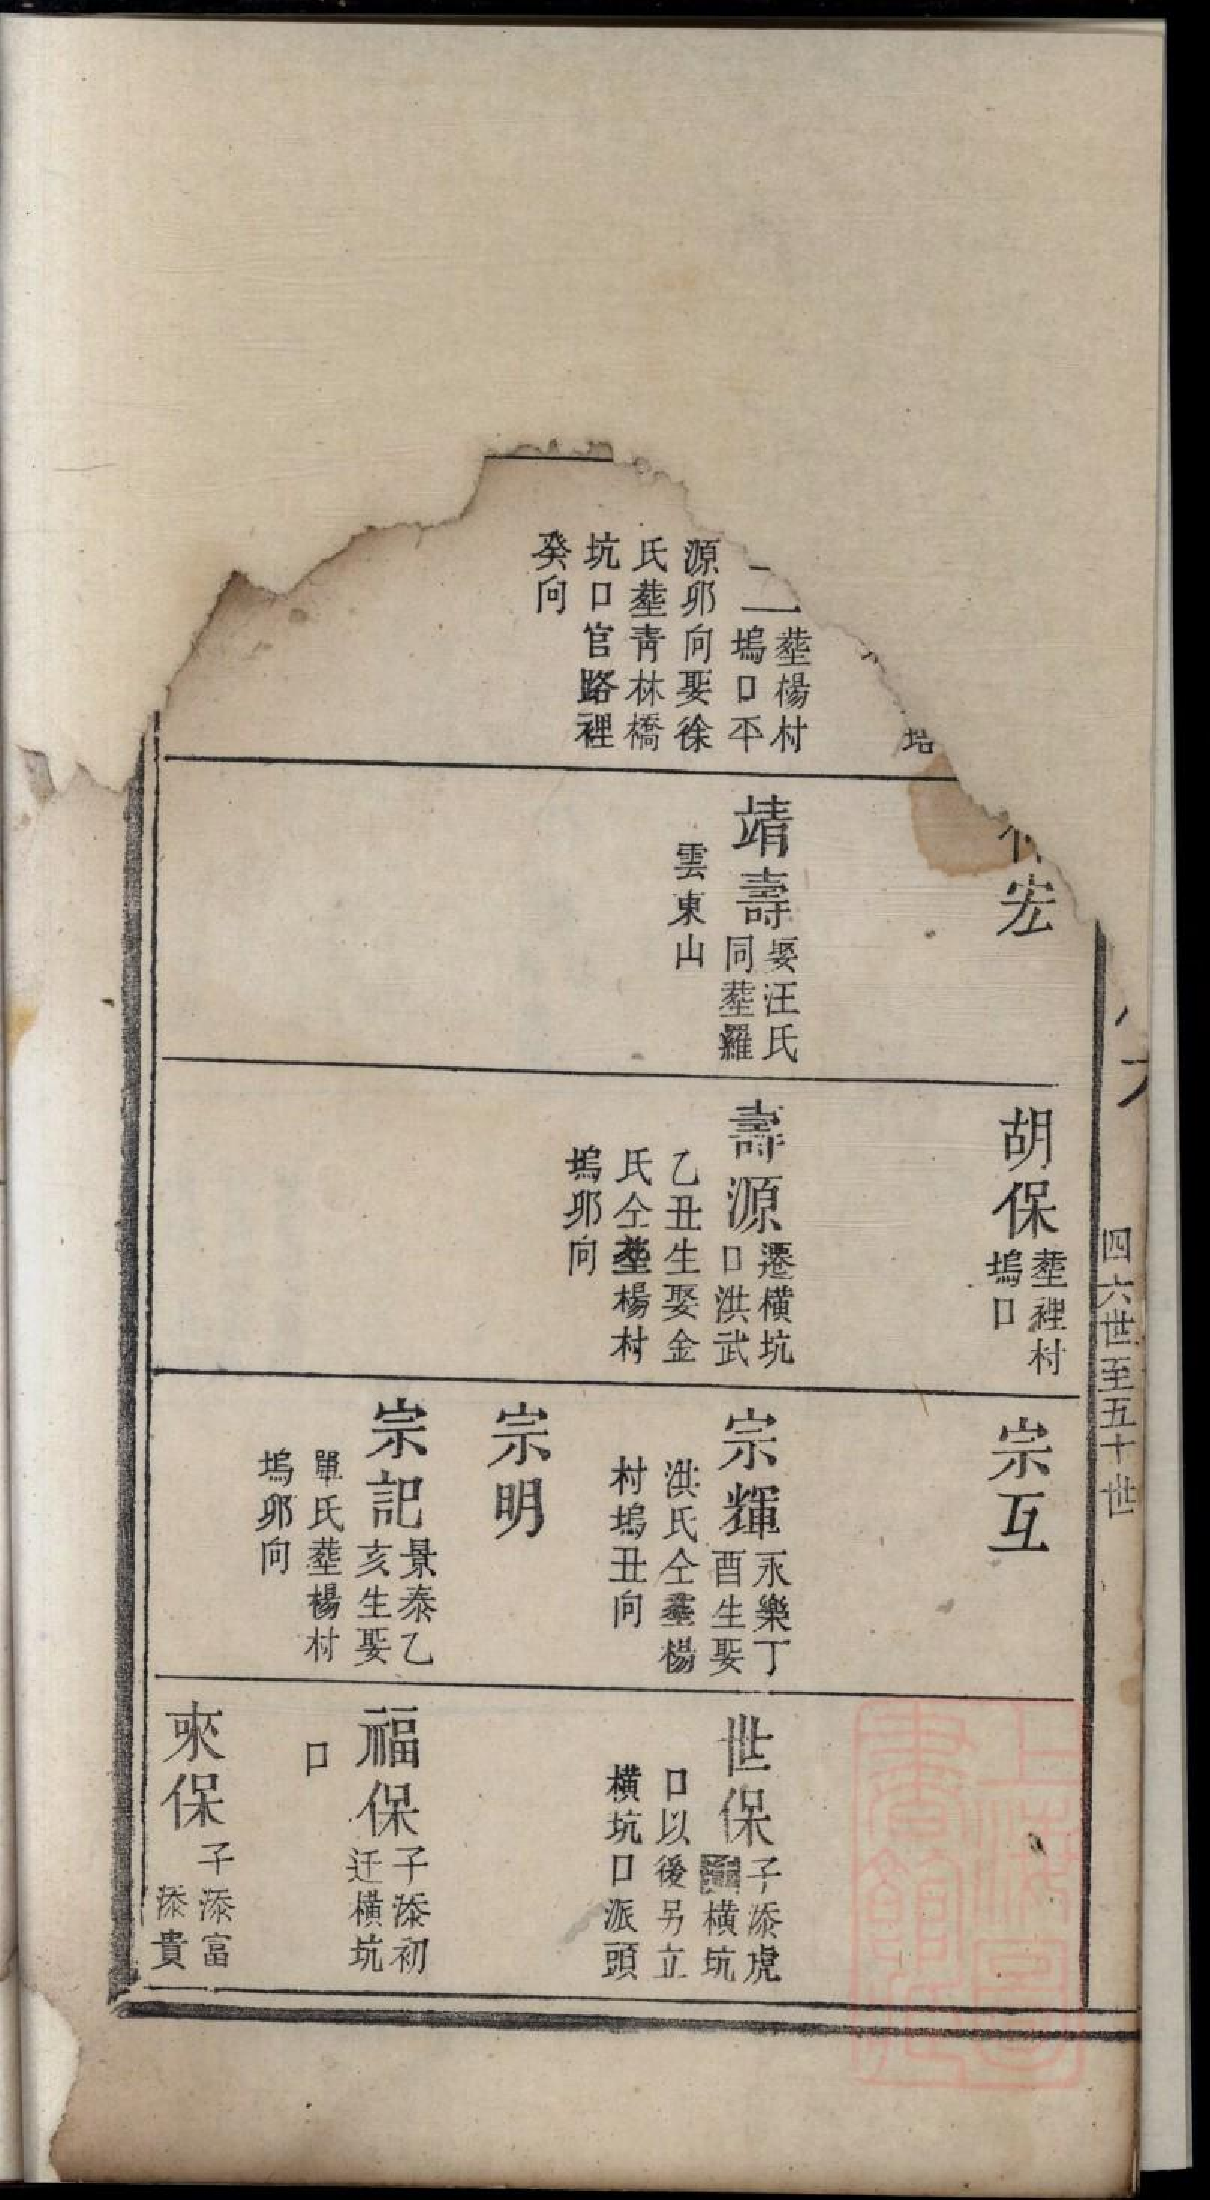 四六世至五十世
塟楊村
塢口平
源夘向娶徐
氏塟青林橋
坑口官路裡
癸向
宏
靖壽
娶汪氏
同塟羅
雲東山
胡保
塟裡村
塢口
壽源
遷橫坑
口洪武
乙丑生娶金
氏仝塟楊村
塢夘向
宗互
宗輝
永樂丁
酉生娶
洪氏仝塟楊
村塢丑向
宗明
宗記
景泰乙
亥生娶
單氏塟楊村
塢夘向
世保
子添虎
橫坑
口以後另立
橫坑口派頭
福保
子添初
迁橫坑
口
來保
子添富
添貴
上海圖書館藏